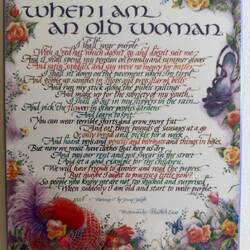 when I am
an old woman
I shall wear purple
With a red hat which doesn't go, and doesn't suit me,
And I shall spend my pension on brandy and summer gloves
And satin sandals, and say we've no money for butter.
I shall sit down on the pavement when I'm tired
And gobble up samples in shops and press alarm bells
And run my stick along the public railings
And make up for the sobriety of my youth.
I shall go out in my slippers in the rain
And pick the flowers in other people's gardens
And learn to spit.
You can wear terrible shirts and grow more fat
And eat three pounds of sausages at a go
Or only bread and pickle for a week
And hoard pens and pencils and beermats and things in boxes.
But now we must have clothes that keep us dry
And pay our rent and not swear in the street
And set a good example for the children.
We will have friends to dinner and read the papers.
But maybe I ought to practise a little now?
So people who know me are not too shocked and surprised
When suddenly I am old and start to wear purple.
Jenny Joseph